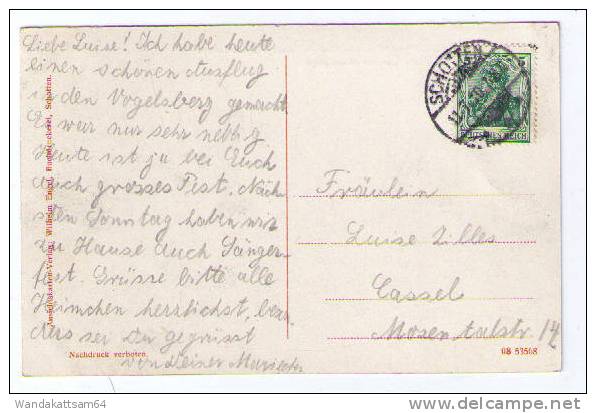 Liebe Luise! Ich habe heute
einen schönen Ausflug
in den Vogelsberg gemacht
Es war nur sehr neblig
Heute ist ja bei Euch
auch grosses Fest. Näch-
sten Sonntag haben wir
zu Hause auch Sänger-
fest. Grüsse bitte alle
herzlichst, beson-
ders sei Du gegrüsst
von Deiner
Fräulein
Luise Zilles
Cassel
Mosentalstr. 14
SCHOTTEN
5
DEUTSCHES REICH
Ansichtskarten-Verlag: Wilhelm Engel, Buchdruckerei, Schotten.
Nachdruck verboten.
08 53568
Wandakattsam64
delcampe.net